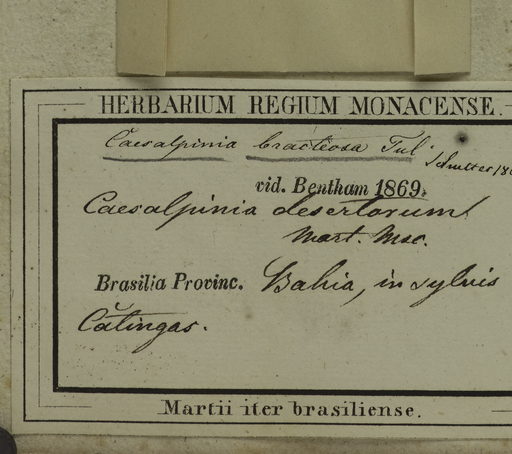 HERBARIUM REGIUM MONACENSE.
Caesalpinia bracteosa Tul
vid. Bentham 1869.
Caesalpinia desertorum
Mart. Msc.
Brasilia Provinc. Bahia, in sylvis
Cătingas.
Martii iter brasiliense.